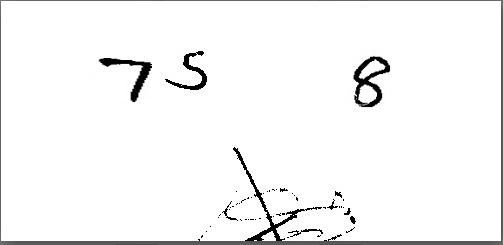 75 8